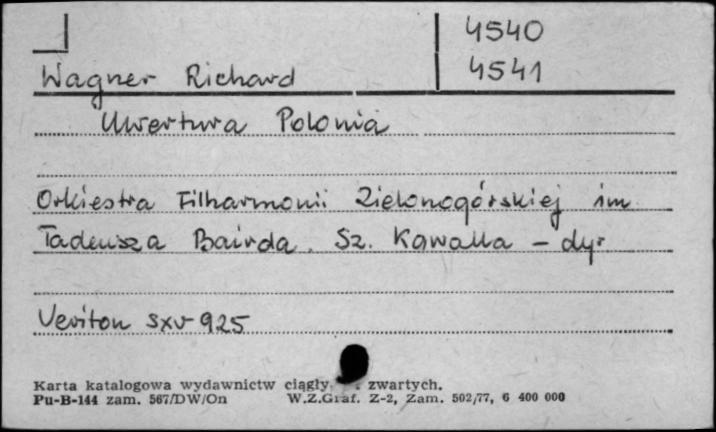 4540
4541
Wagner Richard
Uwertura Polonia
Orkiestra Filharmonii Zielonogórskiej im
Tadeusza Bairda. Sz. Kawalla - dyr
Veriton sxv 925
Karta katalogowa wydawnictw ciągły zwartych.
Pu-B-144 zam. 567/DW/On W.Z.Graf. Z-2, Zam. 502/77, 6 400 000